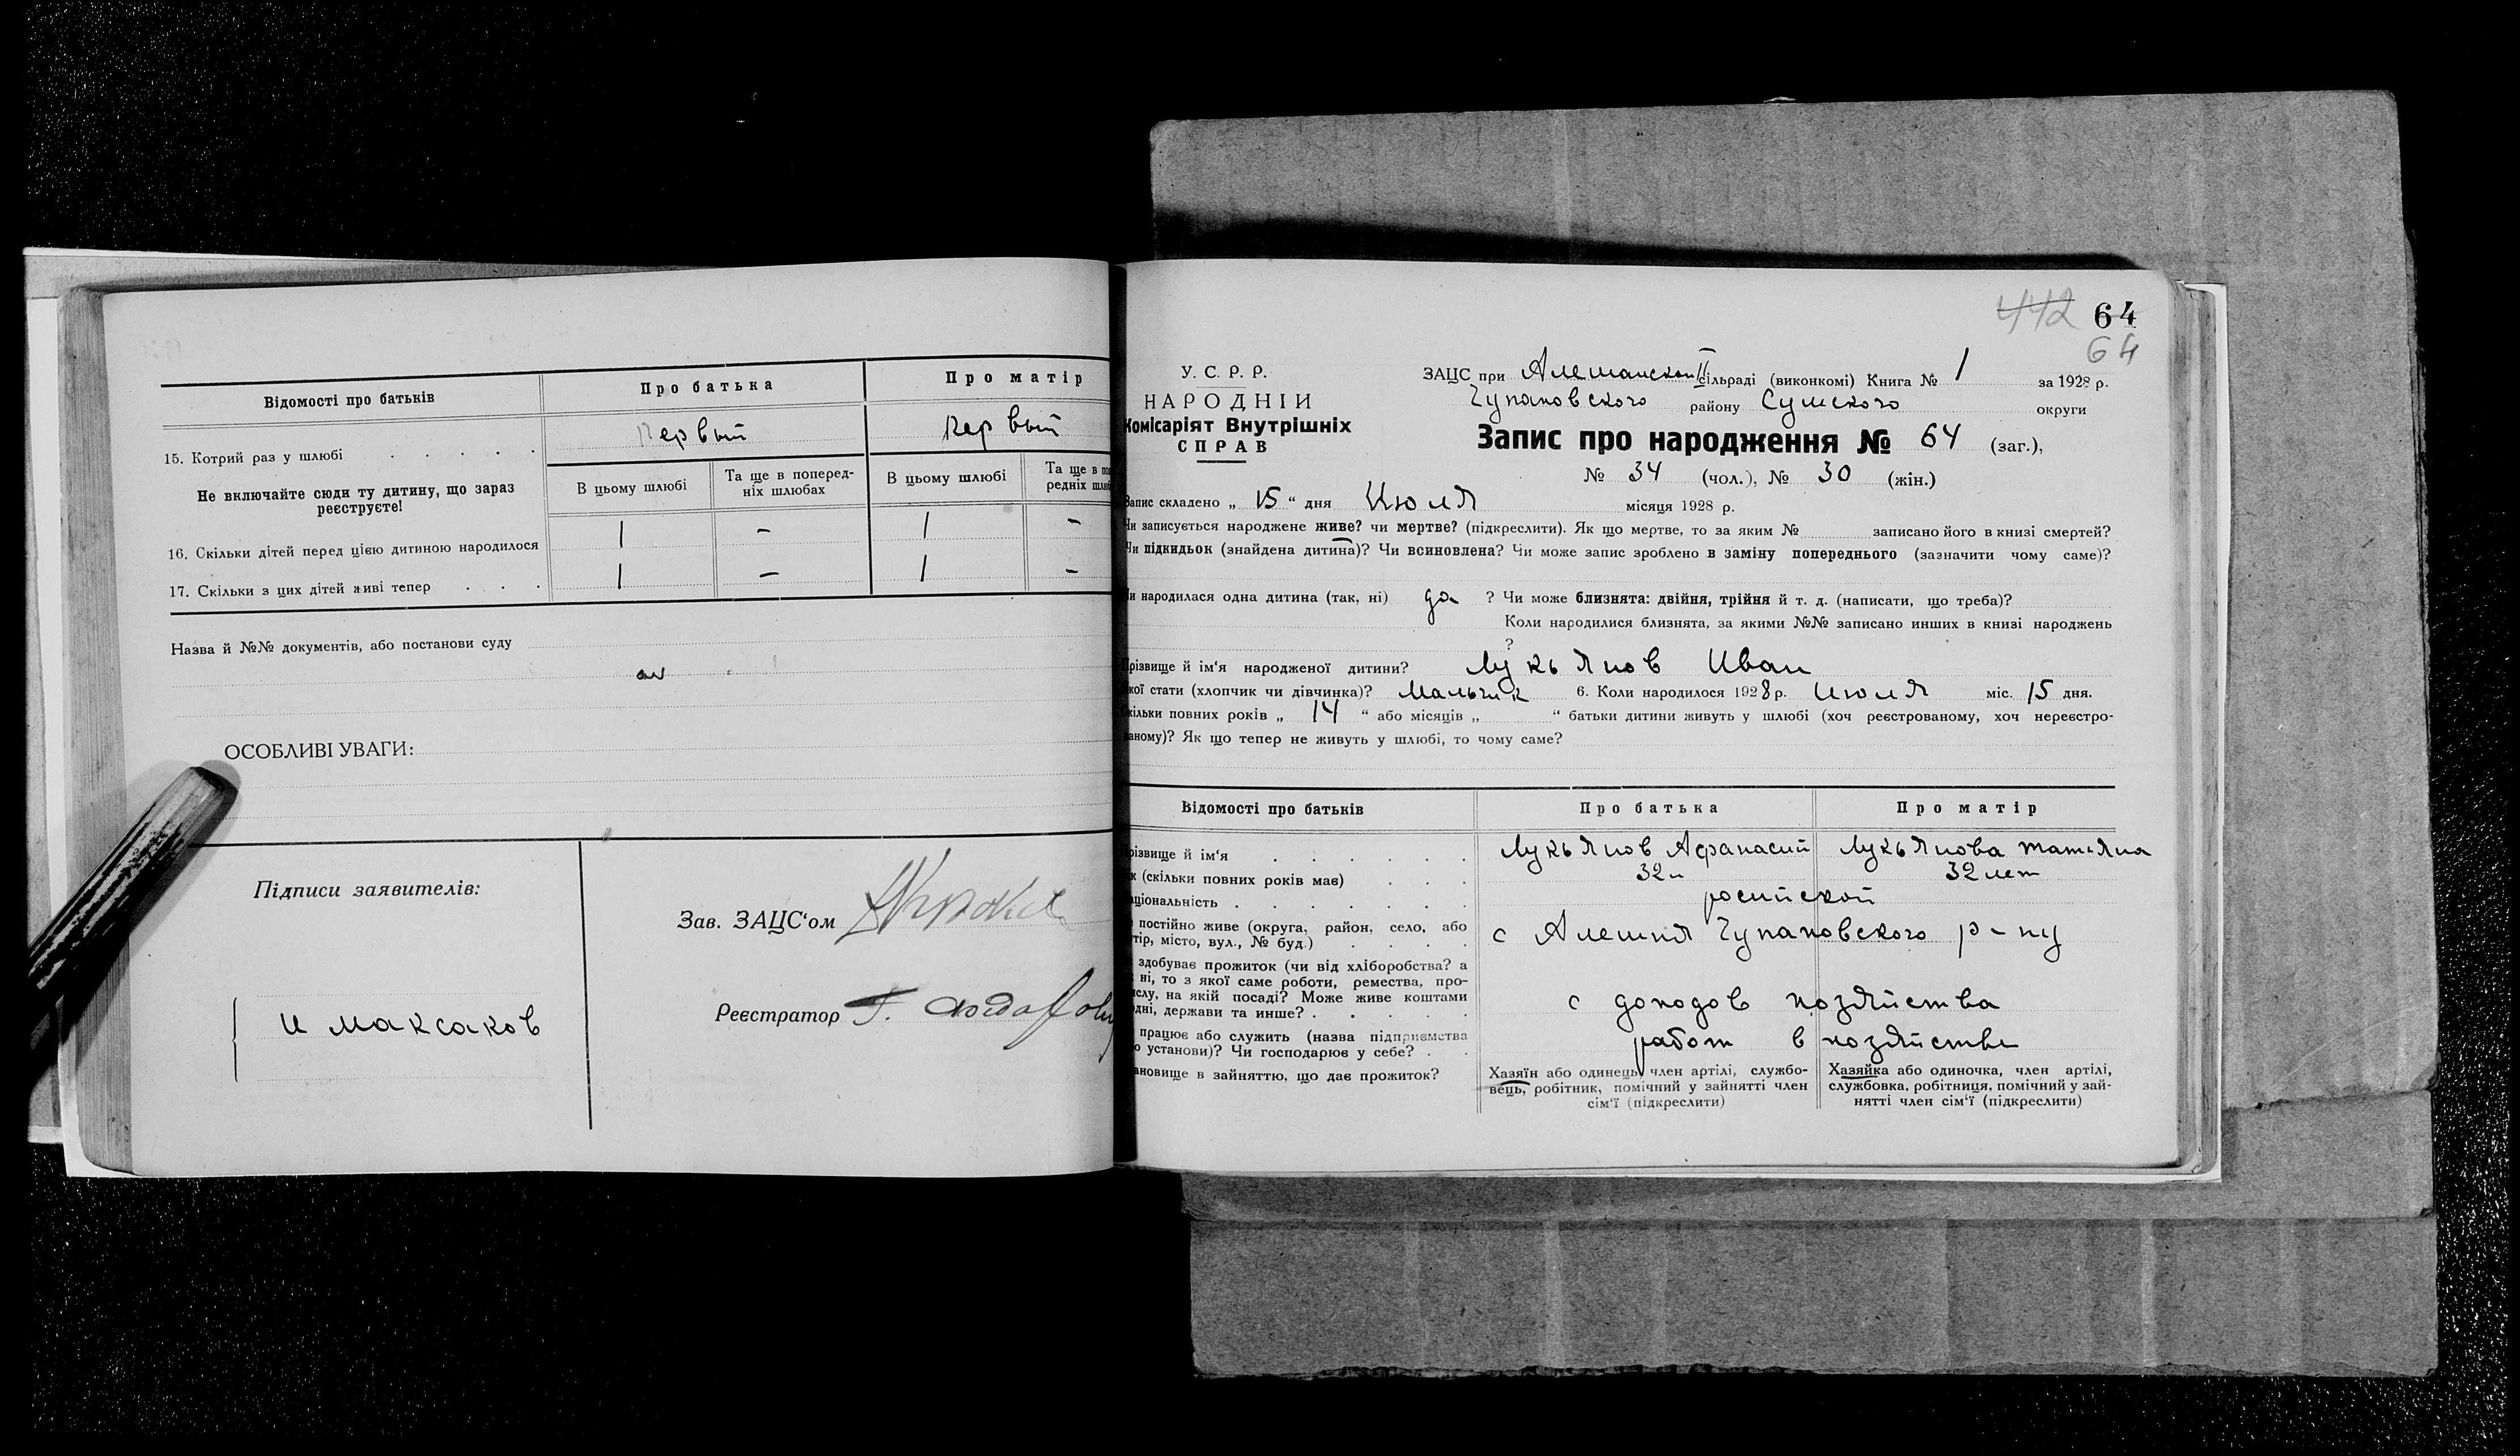 Відомості про батьків
Про батька
Про матір
Первый
Первый
15. Котрий раз у шлюбі
Не включайте сюди ту дитину, що зараз
реєструєте!
В цьому шлюбі
Та ще в поперед-
ніх шлюбах
В цьому шлюбі
Та ще в по
редніх шлю
16. Скільки дітей перед цією дитиною народилося
1 – 1 –
17. Скільки з цих дітей живі тепер
1 – 1 –
Назва й №№ документів, або постанови суду
ОСОБЛИВІ УВАГИ:
Підписи заявителів:
И Максаков
Зав. ЗАЦС'ом
Реєстратор
442 64
64
У. С. Р. Р.
НАРОДНІЙ
Комісаріят Внутрішніх
СПРАВ
ЗАЦС при Алешанской II сільраді (виконкомі) Книга № 1 за 1928 р.
Чупаховского району Сумского округи
Запис про народження № 64 (заг.),
№ 34 (чол.), № 30 (жін.)
Запис складено „ 15 “ дня Июля місяця 1928 р.
Чи записується народжене живе? чи мертве? (підкреслити). Як що мертве, то за яким № записано його в книзі смертей?
Чи підкидьок (знайдена дитина)? Чи всиновлена? Чи може запис зроблено в заміну попереднього (зазначити чому саме)?
Чи народилася одна дитина (так, ні) да ? Чи може близнята: двійня, трійня й т. д. (написати, що треба)?
Коли народилися близнята, за якими №№ записано инших в книзі народжень
?
різвище й ім'я народженої дитини? Лукьянов Иван
кої стати (хлопчик чи дівчинка)? Мальчик 6. Коли народилося 1928 р. Июля міс. 15 дня.
кільки повних років „ 14 “ або місяців „ “ батьки дитини живуть у шлюбі (хоч реєстрованому, хоч нереєстро-
ваному)? Як що тепер не живуть у шлюбі, то чому саме?
Відомості про батьків
Про батька
Про матір
різвище й ім'я
Лукьянов Афанасий
Лукьянова Татьяна
к (скільки повних років має)
32л
32 лет
ціональність
росийской
постійно живе (округа, район, село, або
тір, місто, вул., № буд.)
с Алешня Чупаховского р-ну
здобуває прожиток (чи від хліборобства? а
ні, то з якої саме роботи, ремества, про-
слу, на якій посаді? Може живе коштами
дні, держави та инше?
с доходов хозяйства
працює або служить (назва підприємства
о установи)? Чи господарює у себе?
работ в хозяйстве
ановище в зайняттю, що дає прожиток?
Хазяїн або одинець, член артілі, службо-
вець, робітник, помічний у зайнятті член
сім'ї (підкреслити)
Хазяйка або одиночка, член артілі,
службовка, робітниця, помічний у зай-
нятті член сім'ї (підкреслити)